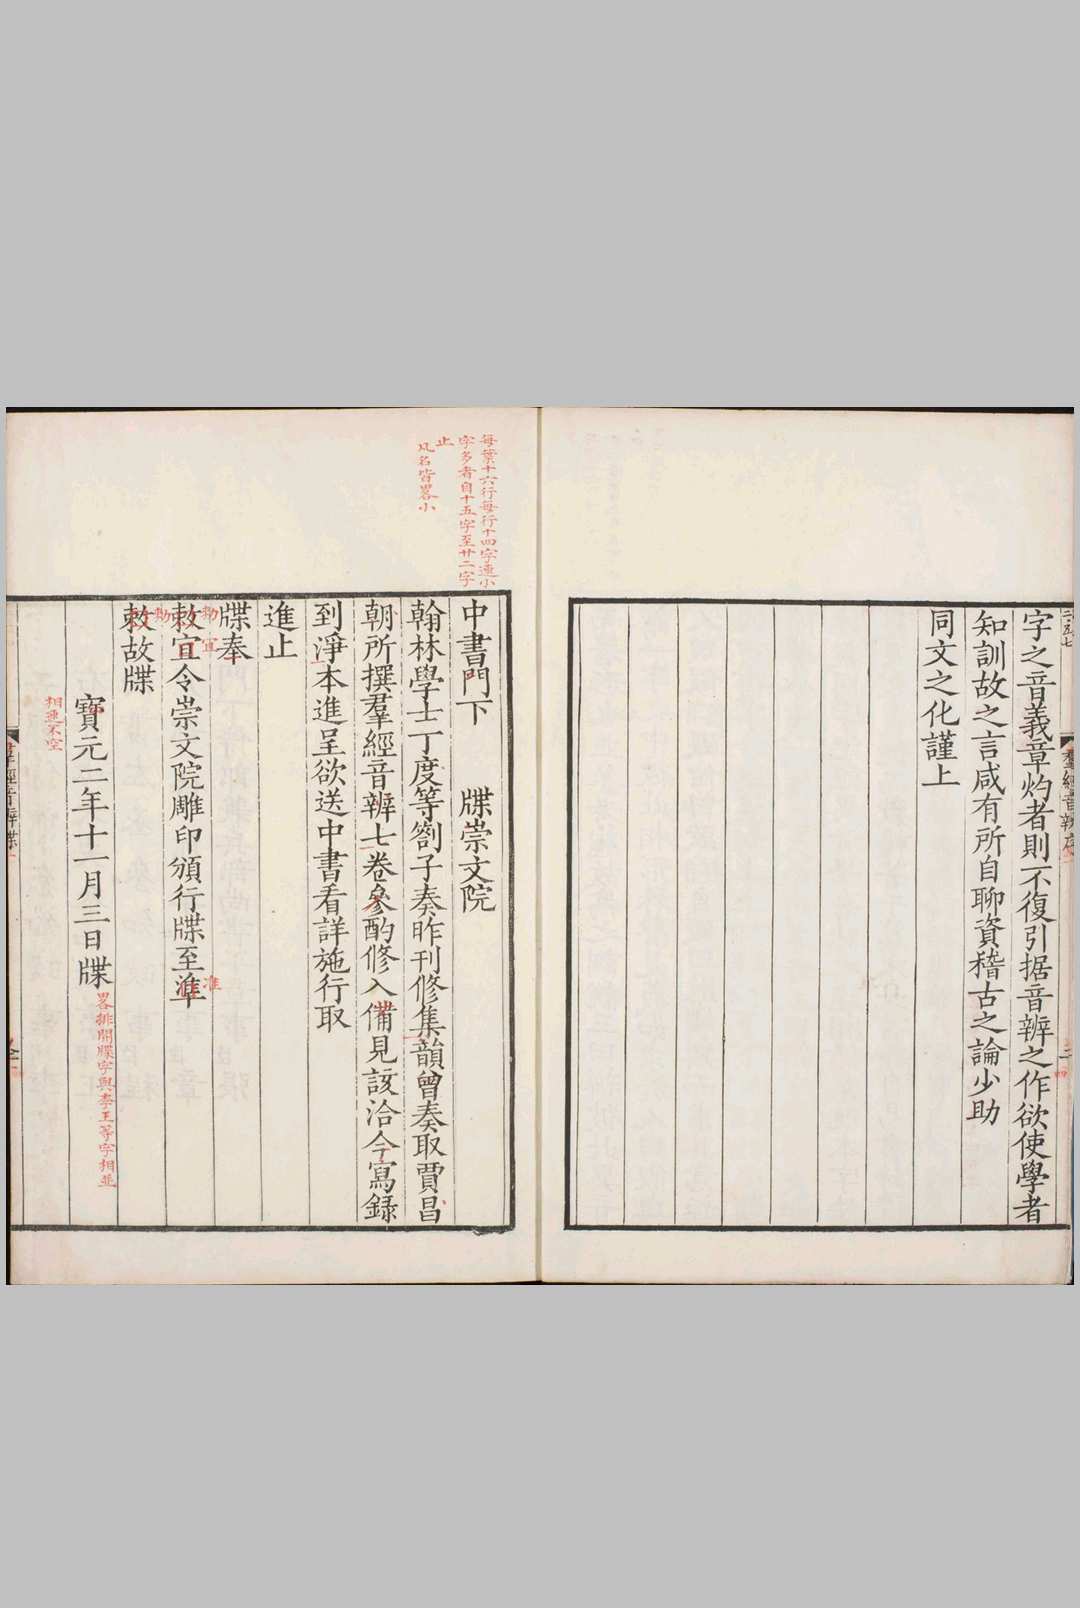 字之音義章灼者則不復引据音辨之作欲使學者
知訓故之言咸有所自聊資稽古之論少助
同文之化謹上
每葉十六行每行十四字連小
字多者自十五字至廿二字
止
凡名皆畧小
中書門下　牒崇文院
翰林學士丁度等劄子奏昨刊修集韻曾奏取賈昌
朝所撰羣經音辨七卷參酌修入備見該洽今寫錄
到淨本進呈欲送中書看詳施行取
進止
牒奉
敕宜令崇文院雕印頒行牒至準
敕故牒
寶元二年十一月三日牒
畧排開牒字與李王等字相並
相連不空
羣經音辨牒